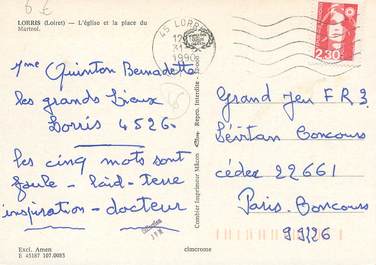 6 €
LORRIS (Loiret) — L'église et la place du
Martroi.
45 LORRIS
12
31
1990
2,30
Mme Quinton Bernadette
les grands Lieux
Lorris 45260
les cinq mots sont
foule - laid - terre
inspiration - docteur
Excl. Amen
E 45187 107.0085
Combier Imprimeur Mâcon
Repro. Interdite
Grand Jeu FR3.
Concours
cédex 22661
Paris-Concours
99126
cimcrome